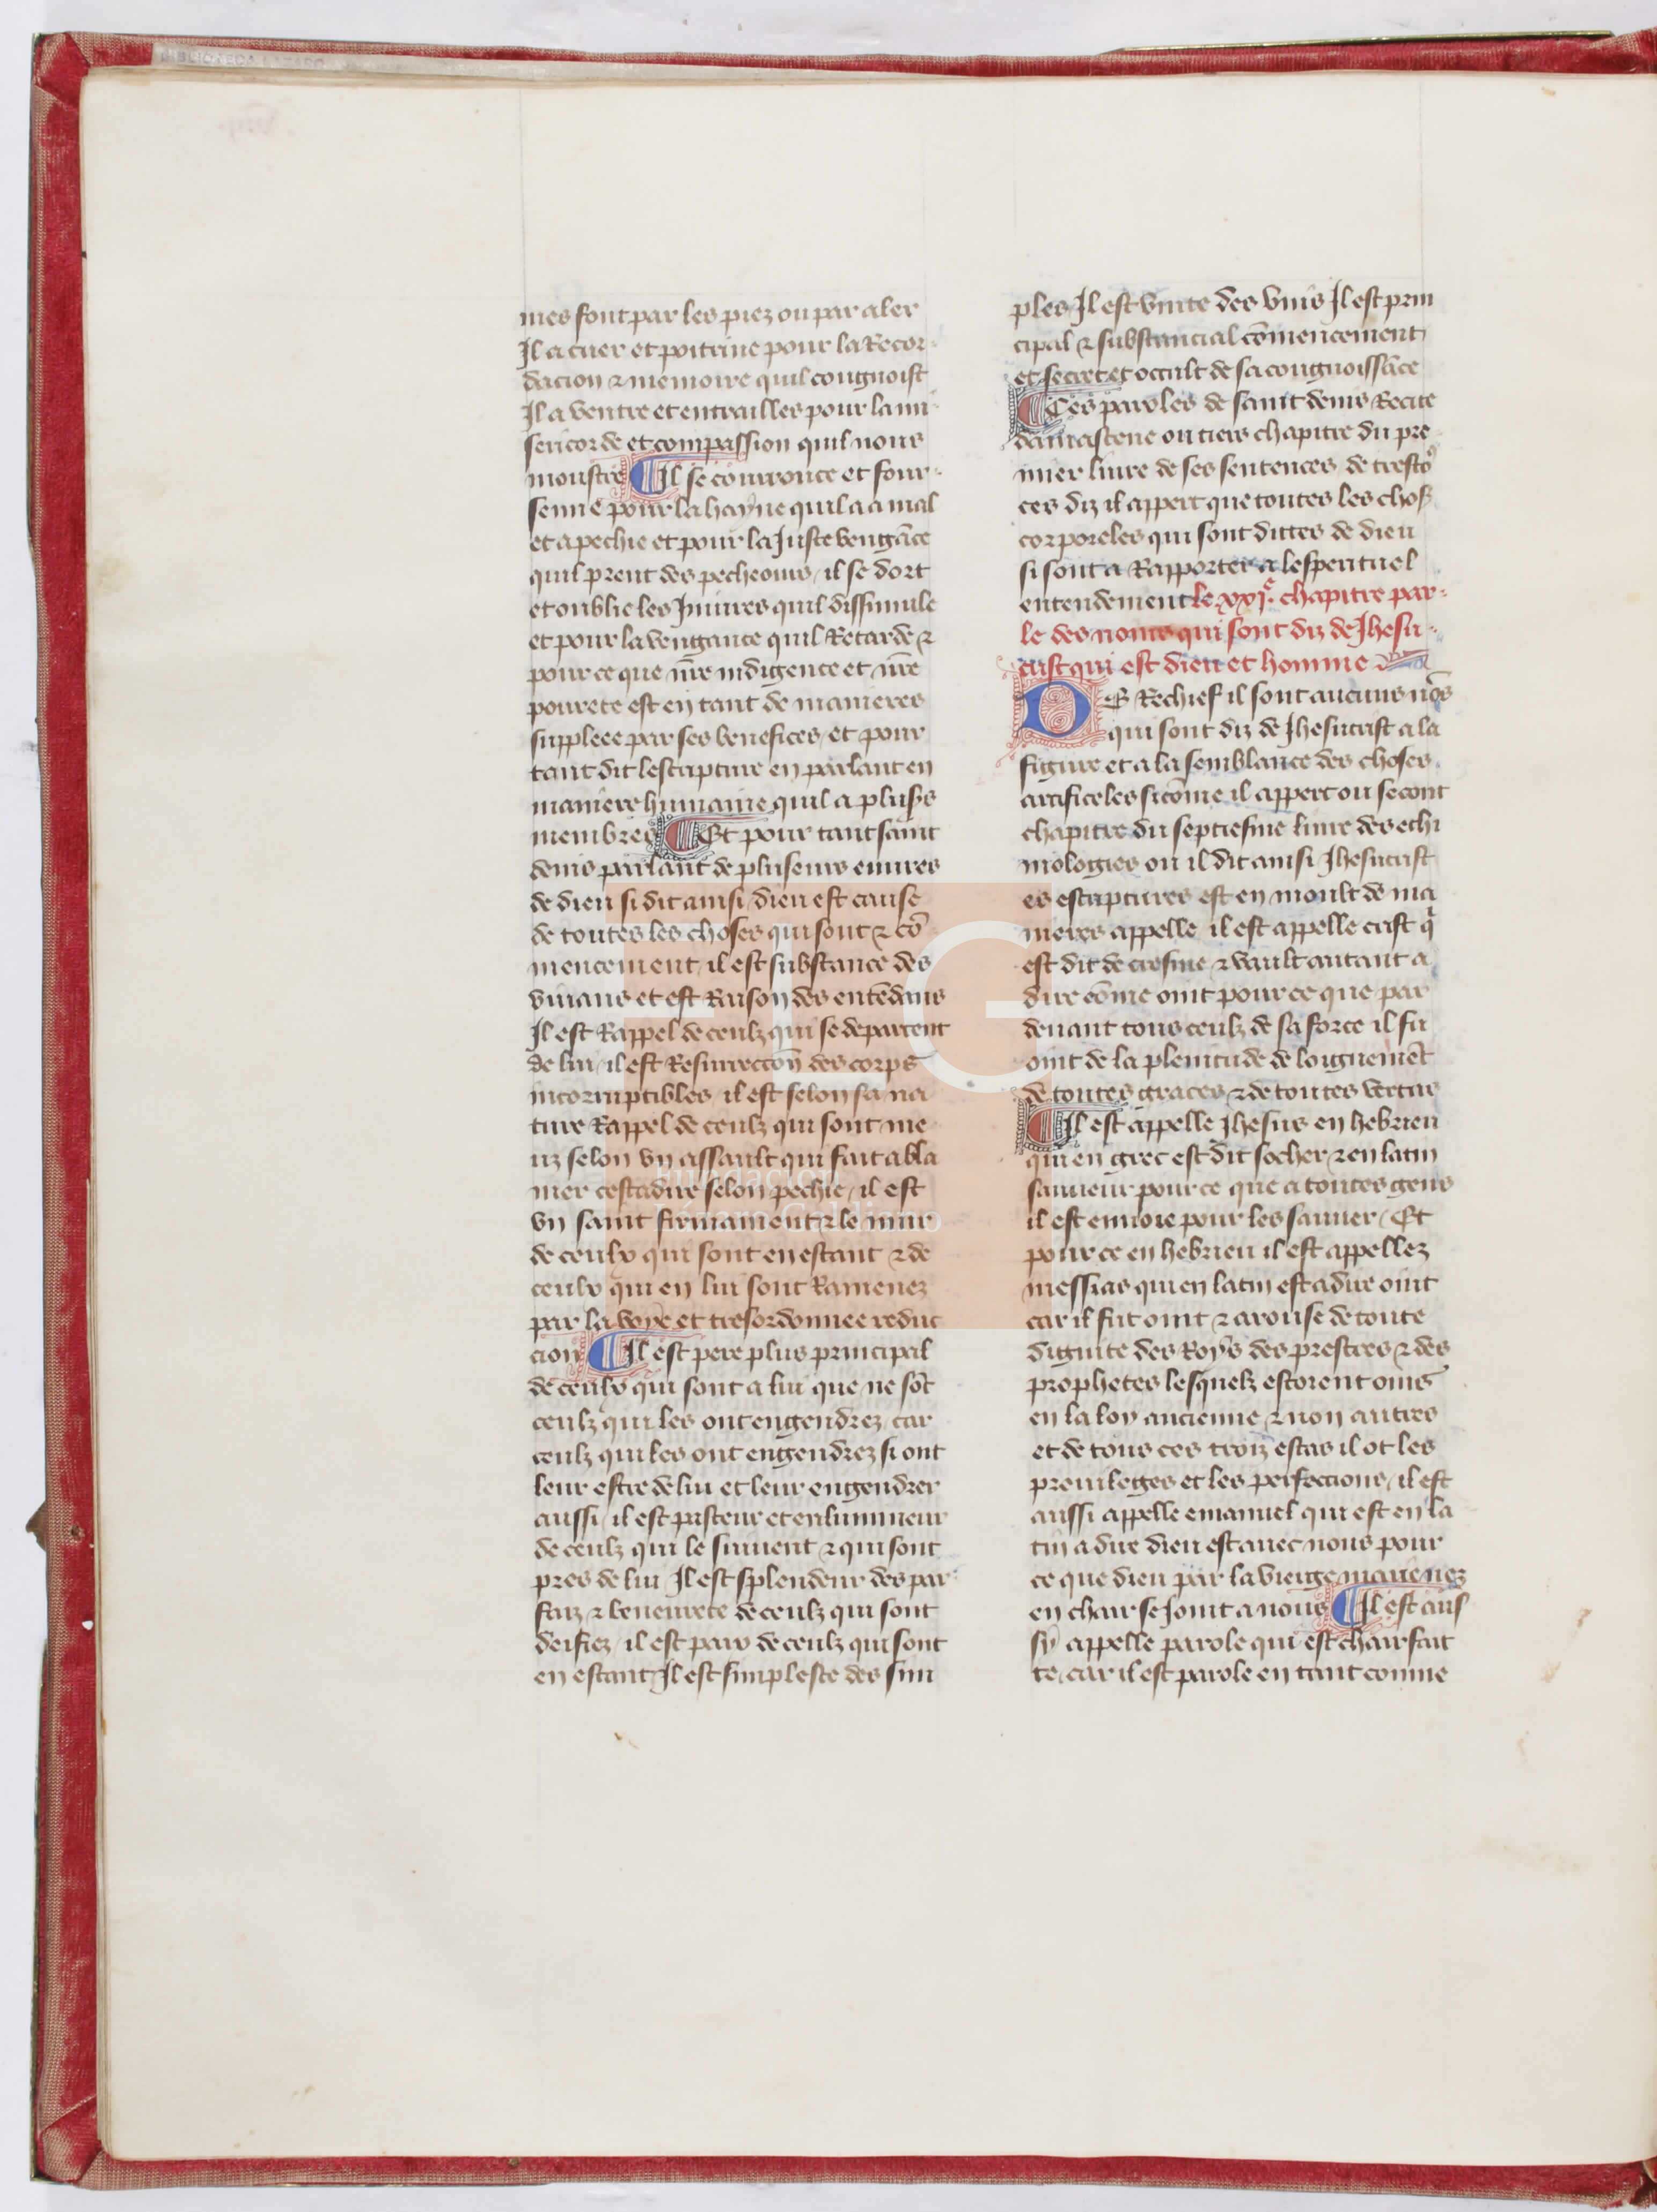 BIBLIOTECA LAZARO
mes font par les piez ou par aler
Il a cuer et poitrine pour la Recor
dacion ⁊ memoire quil congnoist
Il a ventre et entrailles pour la mi
sericorde et compassion quil nous
monstre Il se courrouce et four
senne pour la hayne quil a a mal
et a pechie et pour la Juste vengāce
quil prent des pecheours / il se dort
et oublie les Iniures quil dissimule
et pour la vengance quil Retarde ⁊
pour ce que nr̄e indigence et nr̄e
pourete est en tant de manieres
suppleee par ses benefices / et pour
tant dit lescripture en parlant en
maniere humaine quil a plus̉s
membres Et pour tant saint
denis parlant de pluseurs euures
de dieu si dit ainsi / dieu est cause
de toutes les choses qui sont ⁊ cō
mencement / il est substance des
viuans et est Raison des entēdans
Il est Rappel de ceulz qui se departent
de lui / il est Resurreccoῡ des corps
incorruptibles / il est selon sa na
ture Rappel de ceulz qui sont me
uz selon vn assault qui fait a bla
mer cestadire selon pechie / il est
vn saint firmament ⁊ le mur
de ceulx qui sont en estant ⁊ de
ceulx qui en lui sont Ramenez
par la voye et tresordonnee reduc
cion Il est pere plus principal
de ceulx qui sont a lui que ne sōt
ceulz qui les ont engendrez / car
ceulz qui les ont engendrez si ont
leur estre de lui et leur engendrer
aussi / il est pasteur et enlumineur
de ceulz qui le suiuent ⁊ qui sont
pres de lui Il est splendeur des par
faiz ⁊ beneurete de ceulz qui sont
deifiez / il est paix de ceulz qui sont
en estant / Il est simpleste des sim
ples / Il est vnite des vnis Il est prin
cipal ⁊ substancial cōmencement
et secret et occult de sa congnoissāce
Ces paroles de saint denis Recite
damascene ou tiers chapitre du pre
mier liure de ses sentences de trestō
ces diz il appert que toutes les chos̉
corporeles qui sont dittes de dieu
si sont a Rapporter a lesperituel
entendement le xxjͤ. chapitre par
le des noms qui sont diz de Jhesu
crist qui est dieu et homme
DE Rechief il sont aucuns nōs
qui sont diz de Jhesucrist a la
figure et a la semblance des choses
artificeles sicōme il appert ou secont
chapitre du septiesme liure des ethi
mologies ou il dit ainsi Jhesucrist
es escriptures est en moult de ma
nieres appelle il est appelle crist qͥ
est dit de cresme ⁊ vault autant a
dire cōme oint pour ce que par
deuant tous ceulz de sa force il fu
oint de la plenitude de loignemēt
de toutes graces ⁊ de toutes vertus
Il est appelle Jhesus en hebrieu
qui en grec est dit socher ⁊ en latin
sauueur pour ce que a toutes gens
il est enuoie pour les sauuer / Et
pour ce en hebrieu il est appellez
messias qui en latin est a dire oint
car il fut oint ⁊ arouse de toute
dignite des Roys des prestres ⁊ des
prophetes lesquelz estoient oins
en la loy ancienne ⁊ non autres
et de tous ces troiz estas il ot les
preuileges et les perfeccions / il est
aussi appelle emanuel qui est en la
tin a dire dieu est auec nous pour
ce que dieu par la vierge marie nez
en chair se Joint a nous Il est aus
sy appelle parole qui est chair fait
te / car il est parole en tant comme
FLG
Fundación
Lázaro Galdiano